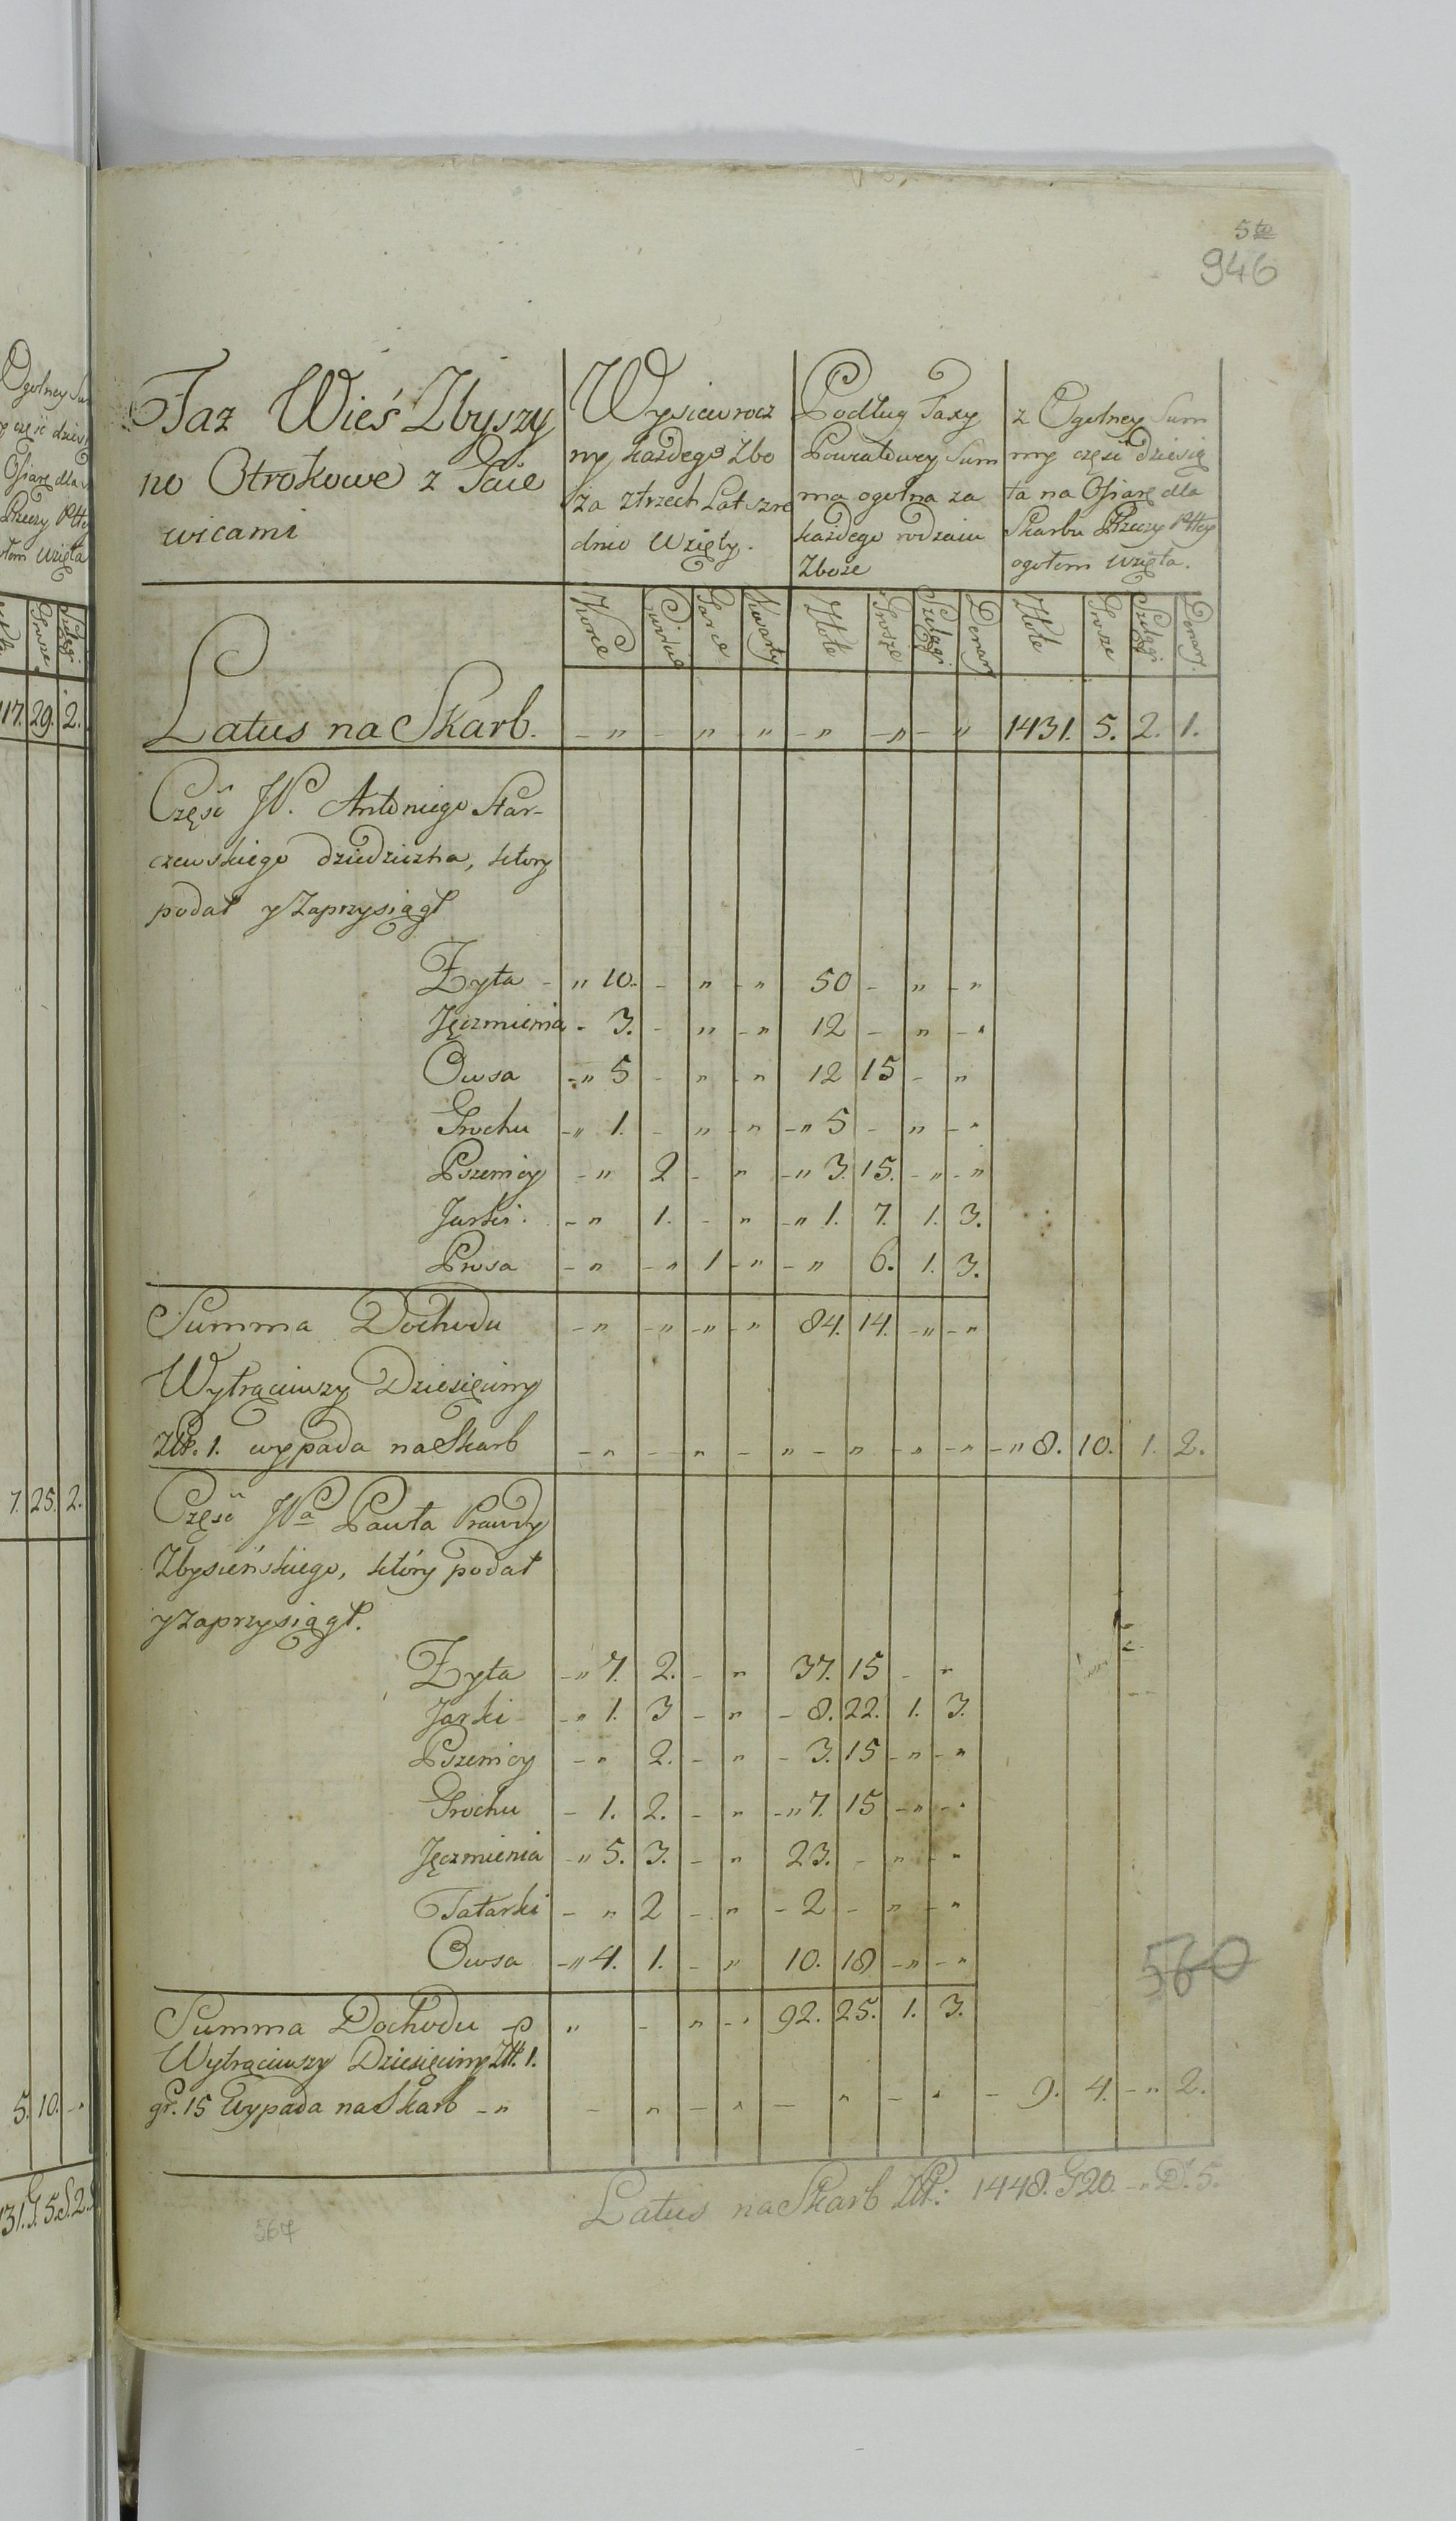 5to
946
Taz Wieś Zbyszy
no Otrokowe z Paie
wicami
Wysiew rocz
ny każdego Zbo
ża z trzech Lat szre
dnio Wzięty.
Podług Taxy
Powiatowey Sum
ma ogolna za
każdego rodzaiu
Zboże
z Ogolney Sum
my część dziesią
ta na Ofiarę dla
Skarbu Rzeczy Plttey
ogołem wzięta.
Korce Cwierci Garce Kwarty Złote Grosze Szelągi Denary Złote Grosze Szelągi Denary.
Latus na Skarb. - " - " - " - " - " - " 1431. 5. 2. 1.
Część W. Antoniego Star-
czewskiego dziedzictwa, ktory
podał y Zaprzysiągł
Zyta - " 10. - " - " 50 - " - "
Jęczmienia - 3. - " - " 12 - " - "
Owsa - " 5 - " - " 12 15 - "
Grochu - " 1. - " - " - " 5 - " - "
Pszenicy - " 2 - " - " 3. 15. - " - "
Jarki. - " 1. - " - " 1. 7. 1. 3.
Prosa - " - " 1 - " - " 6. 1. 3.
Summa Dochodu - " - " - " - " 84. 14. - " - "
Wytrąciwszy Dziesięciny
Złt. 1. wypada na Skarb - " - " - " - " - " - " - " 8. 10. 1. 2.
Część Wa Pawła Prawdy
Zbysieńskiego, który podał
y Zaprzysiągł.
Zyta - " 7. 2. - " 37. 15 - "
Jarki - " 1. 3 - " - 8. 22. 1. 3.
Pszenicy - " 2. - " - 3. 15 - " - "
Grochu - 1. 2. - " - " 7. 15 - " - "
Jęczmienia - " 5. 3. - " 23. - " - "
Tatarki - " 2 - " - 2 - " - "
Owsa - " 4. 1. - " 10. 18 - " - "
560
Summa Dochodu " - " - " 92. 25. 1. 3.
Wytrąciwszy Dziesięciny Złt. 1.
gr. 15 Wypada na Skarb - " - " - " - " - " - 9. 4. - " 2.
Latus na Skarb Złt: 1448. G 20. - " D. 5.
567